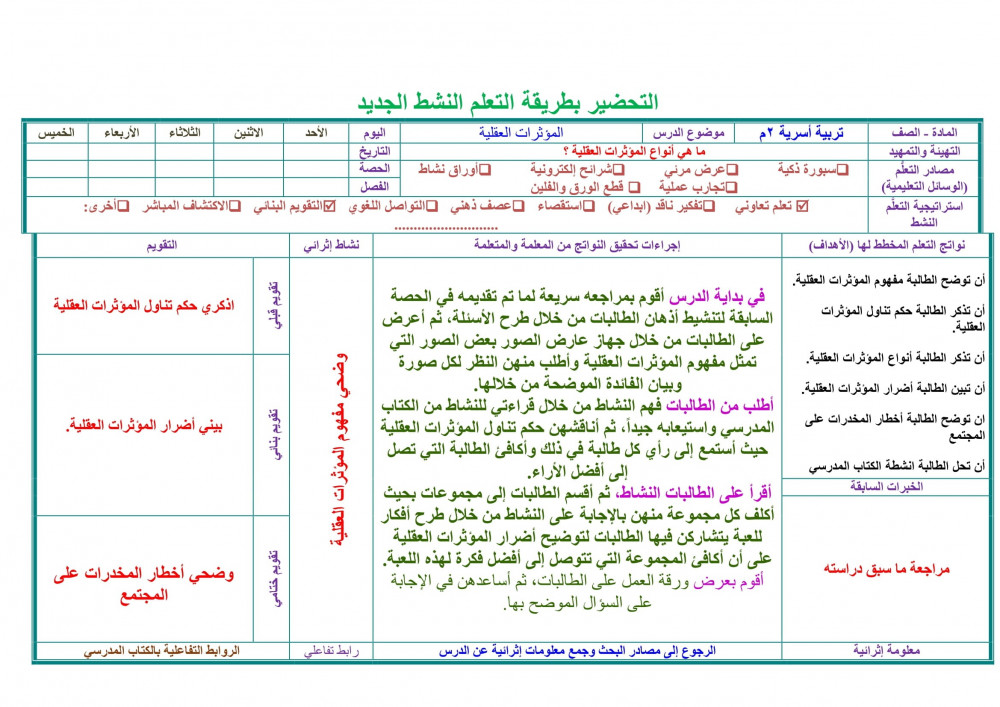 التحضير بطريقة التعلم النشط الجديد
المادة - الصف
تربية أسرية ٢م
موضوع الدرس
المؤثرات العقلية
اليوم
الأحد
الاثنين
الثلاثاء
الأربعاء
الخميس
التهيئة والتمهيد
ما هي أنواع المؤثرات العقلية ؟
التاريخ
مصادر التعلّم
(الوسائل التعليمية)
❑سبورة ذكية ❑عرض مرئي ❑شرائح إلكترونية ❑أوراق نشاط
❑تجارب عملية ❑ قطع الورق والفلين
الحصة
الفصل
استراتيجية التعلّم
النشط
☑ تعلم تعاوني ❑تفكير ناقد (ابداعي) ❑استقصاء ❑عصف ذهني ❑التواصل اللغوي ☑التقويم البنائي ❑الاكتشاف المباشر ❑أخرى:
..........................
نواتج التعلم المخطط لها (الأهداف)
إجراءات تحقيق النواتج من المعلمة والمتعلمة
نشاط إثرائي
التقويم
أن توضح الطالبة مفهوم المؤثرات العقلية.
أن تذكر الطالبة حكم تناول المؤثرات
العقلية.
أن تذكر الطالبة أنواع المؤثرات العقلية.
أن تبين الطالبة أضرار المؤثرات العقلية.
ان توضح الطالبة أخطار المخدرات على
المجتمع
أن تحل الطالبة انشطة الكتاب المدرسي
الخبرات السابقة
مراجعة ما سبق دراسته
في بداية الدرس أقوم بمراجعه سريعة لما تم تقديمه في الحصة
السابقة لتنشيط أذهان الطالبات من خلال طرح الأسئلة، ثم أعرض
على الطالبات من خلال جهاز عارض الصور بعض الصور التي
تمثل مفهوم المؤثرات العقلية وأطلب منهن النظر لكل صورة
وبيان الفائدة الموضحة من خلالها.
أطلب من الطالبات فهم النشاط من خلال قراءتي للنشاط من الكتاب
المدرسي واستيعابه جيداً، ثم أناقشهن حكم تناول المؤثرات العقلية
حيث أستمع إلى رأي كل طالبة في ذلك وأكافئ الطالبة التي تصل
إلى أفضل الأراء.
أقرأ على الطالبات النشاط، ثم أقسم الطالبات إلى مجموعات بحيث
أكلف كل مجموعة منهن بالإجابة على النشاط من خلال طرح أفكار
للعبة يتشاركن فيها الطالبات لتوضيح أضرار المؤثرات العقلية
على أن أكافئ المجموعة التي تتوصل إلى أفضل فكرة لهذه اللعبة.
أقوم بعرض ورقة العمل على الطالبات، ثم أساعدهن في الإجابة
على السؤال الموضح بها.
وضحي مفهوم المؤثرات العقلية
تقويم قبلي
اذكري حكم تناول المؤثرات العقلية
تقويم بنائي
بيني أضرار المؤثرات العقلية.
تقويم ختامي
وضحي أخطار المخدرات على
المجتمع
معلومة إثرائية
الرجوع إلى مصادر البحث وجمع معلومات إثرائية عن الدرس
رابط تفاعلي
الروابط التفاعلية بالكتاب المدرسي